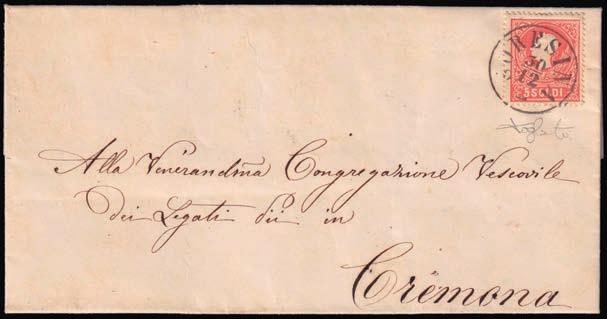 SORESINA
30
12
5 SOLDI
Alla Venerandma Congregazione Vescovile
dei Legati Pii in
Cremona